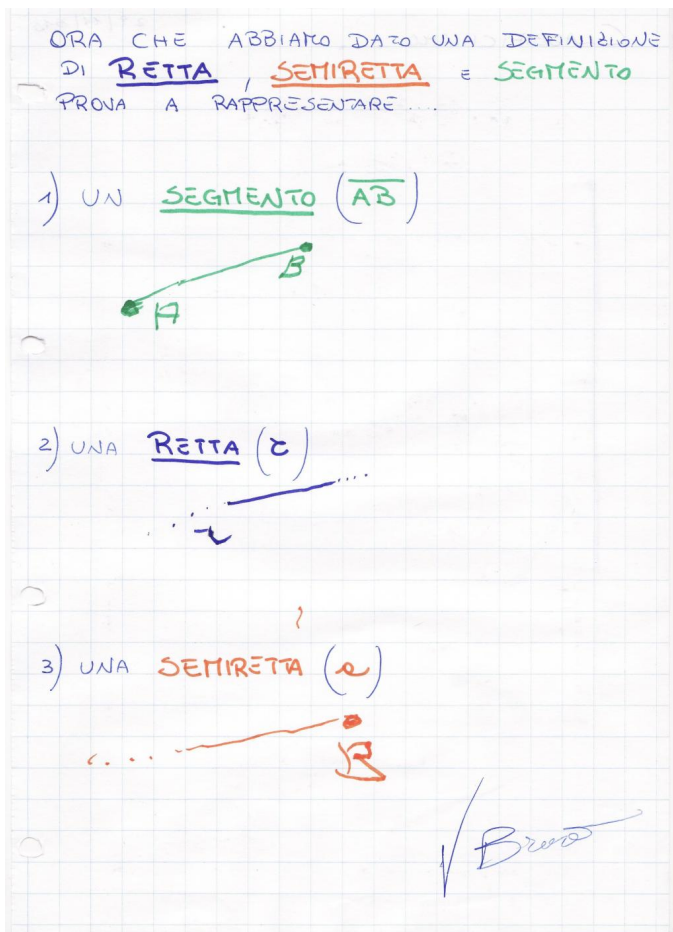 ORA CHE ABBIAMO DATO UNA DEFINIZIONE
DI RETTA, SEMIRETTA E SEGMENTO
PROVA A RAPPRESENTARE....
1) UN SEGMENTO (AB)
B
A
2) UNA RETTA (r)
r
3) UNA SEMIRETTA (a)